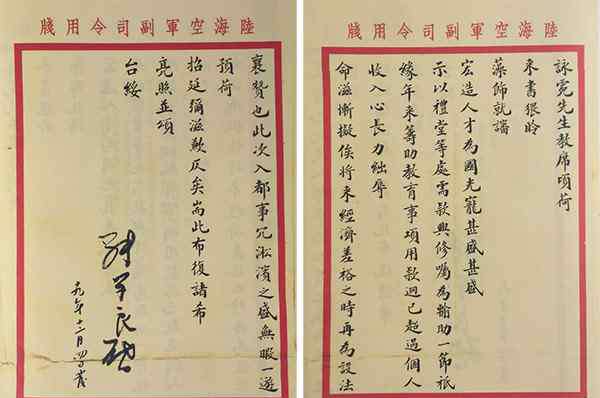 陸海空軍副司令用牋
詠霓先生教席頃荷
來書猥聆
藻飾就諗
宏造人才為國光寵甚盛甚盛
示以禮堂等處需款興修囑為輔助一節祇
緣年來籌助教育事項用款迥已超過個人
收入心長力絀辱
命滋慚擬俟將來經濟差裕之時再為設法
陸海空軍副司令用牋
襄贊也此次入都事冗淞濱之盛無暇一遊
預荷
招延彌滋歉仄矣耑此布復諸希
亮照並頌
台綏
張學良啟
十九年十二月四日